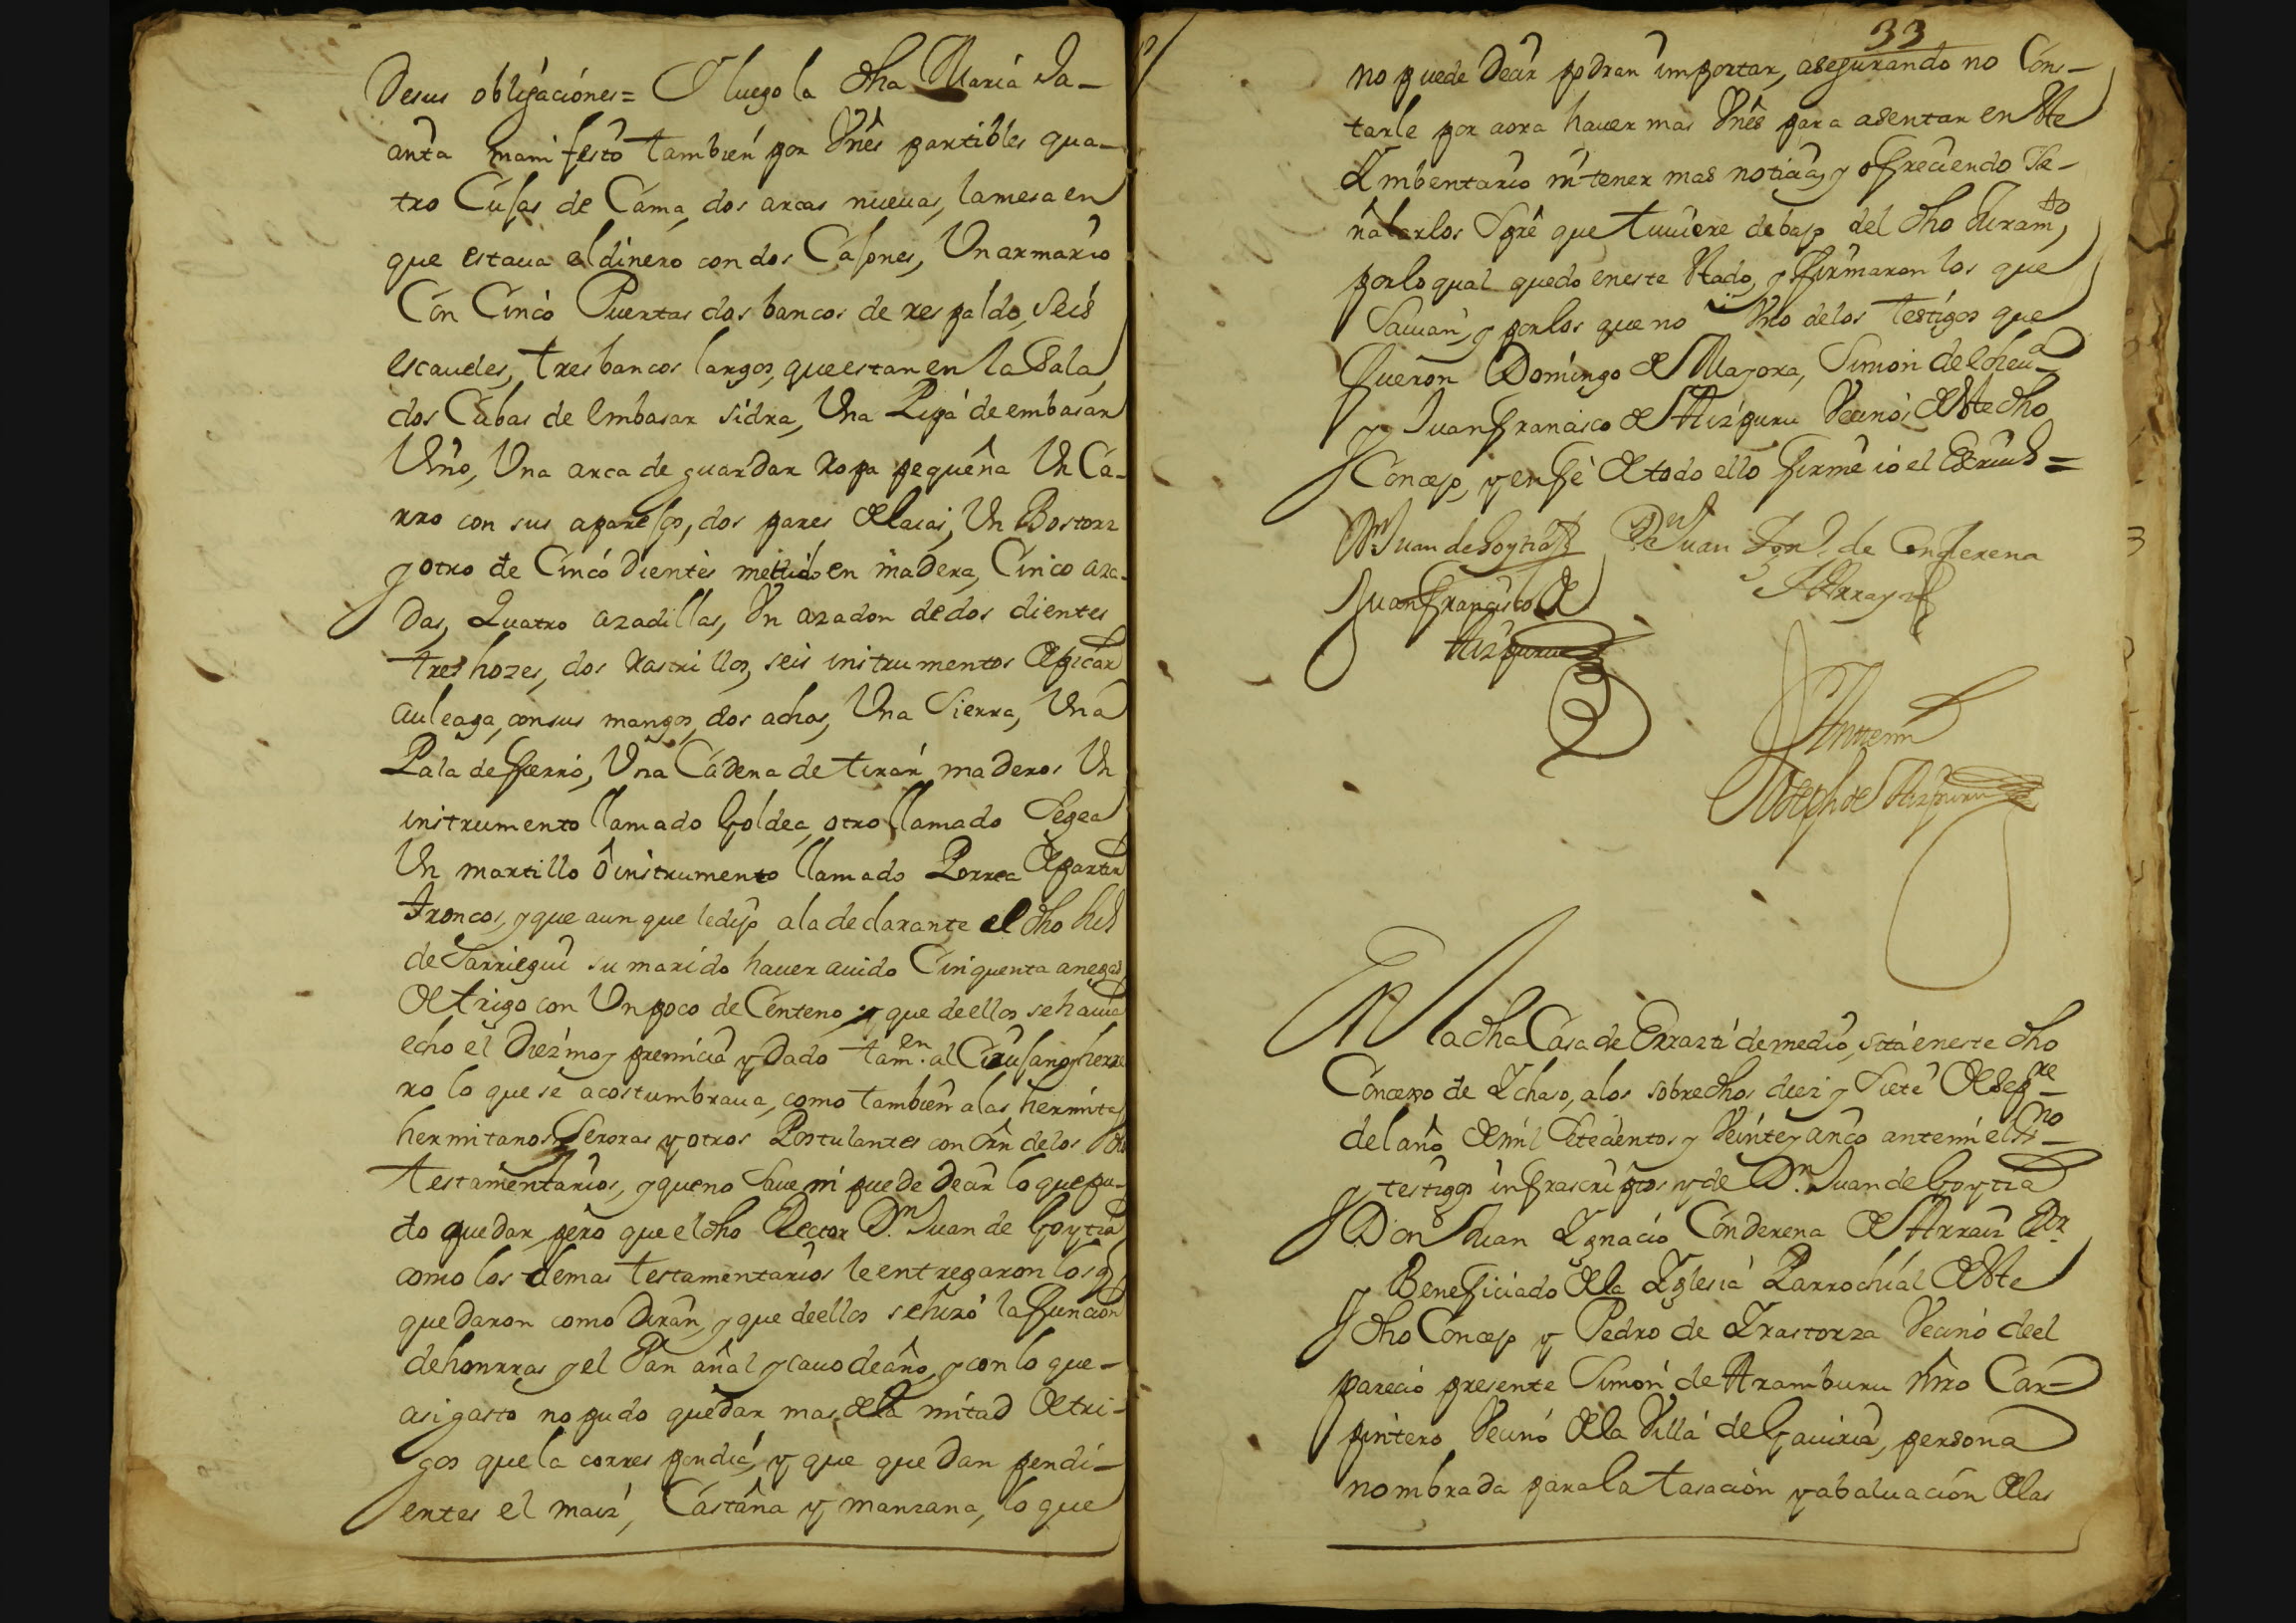 Desus obligaciónes = I luego la dha Maria Ja-
anta manifestò tambien por Vnês partibles qua-
tro Cujas de Cama, dos arcas nueuas, lamesa en
que estaua eldinero con dos Cajones, Un armario
Con Cinco Puertas dos bancos de respaldo, seis
escaueles, tres bancos largos, queestan en la Sala,
dos Cubas de Embasar sidra, Una Pipa de embasar
Vino, Una arca de guardar Ropa pequeña Un Ca-
rro con sus aparejos, dos pares de laias, Un Bostorz
y otro de Cinco dientes metido en madera, Cinco aza-
das, Quatro azadillas, Vn azadon dedos dientes
tres hozes, dos Rastrillos, seis instrumentos de picar
auleaga, consus mangos, dos achas, Una Sierra, Una
Pala de fierro, Una Cadena de tirar maderos Un
instrumento llamado Goldea, otro llamado Segea
Un martillo ô instrumento llamado Porrea de partir
troncos, y que aun que ledijo ala declarante el dho
de Sarriegui su marido hauer auido Cinquenta anegas
de trigo con Un poco de Centeno y que deellos se hauia
echo el Diezmo y premicia y dado tamen. al Cirujano y herre
ro lo que se acostumbraua, como tambien alas hermitas
hermitanos Seroras y otros Postulantes con orn delos dhos
testamentarios, y queno saue ni puede decir lo que pu-
do quedar, pero que el dho Rector Dn. Juan de Goytia
como los demas testamentarios le entregaron los q
quedaron como diran, y que deellos se hizo la funcion
dehonrras y el Pan añal y cauo deaño, y con lo que-
asi gasto no pudo quedar mas de la mitad de tri-
gos que la correspondia, y que quedan pendi-
entes el maiz, Castaña y manzana, lo que
33
no puede decir podran importar, asegurando no Cons-
tarle por aora hauer mas Vnês para asentar en este
Imbentario ni tener mas noticia, y ofreciendo Se-
ñalarlos Sprê que tuuiere debajo del dho Juramto,
porloqual quedo eneste estado, y firmaron los que
Sauian, y porlos que no Vno delos testigos que
fueron Domingo de Mayora, Simon de
y Juan francisco de Aizpuru Vecinos de este dho
Concejo, y en fè de todo ello firmè io el Escriuo =
Dn Juan de Goytia Dn Juan de Conderena
Array
Juan francisco de
Aizpuru
Antemi
Joseph de Aizpuru
En la dha Casa de Errazti demedio, sita eneste dho
Concexo de Ichaso, alos sobredhos diez y siete de sepre
delaño de mil setecientos y Veinte y cinco antemi el sno
y testigos infrascriptos y de Dn. Juan de Goytia
Don Juan Ignacio Conderena de Arrais Rr
y Beneficiado de la Iglesia Parrochial de este
dho Concejo y Pedro de Irastorza Vecino deel
parecio presente Simon de Aramburu Mro Car-
pintero Vecino de la Villa de Gauiria, persona
nombrada parala tasacion y abaluacion de las